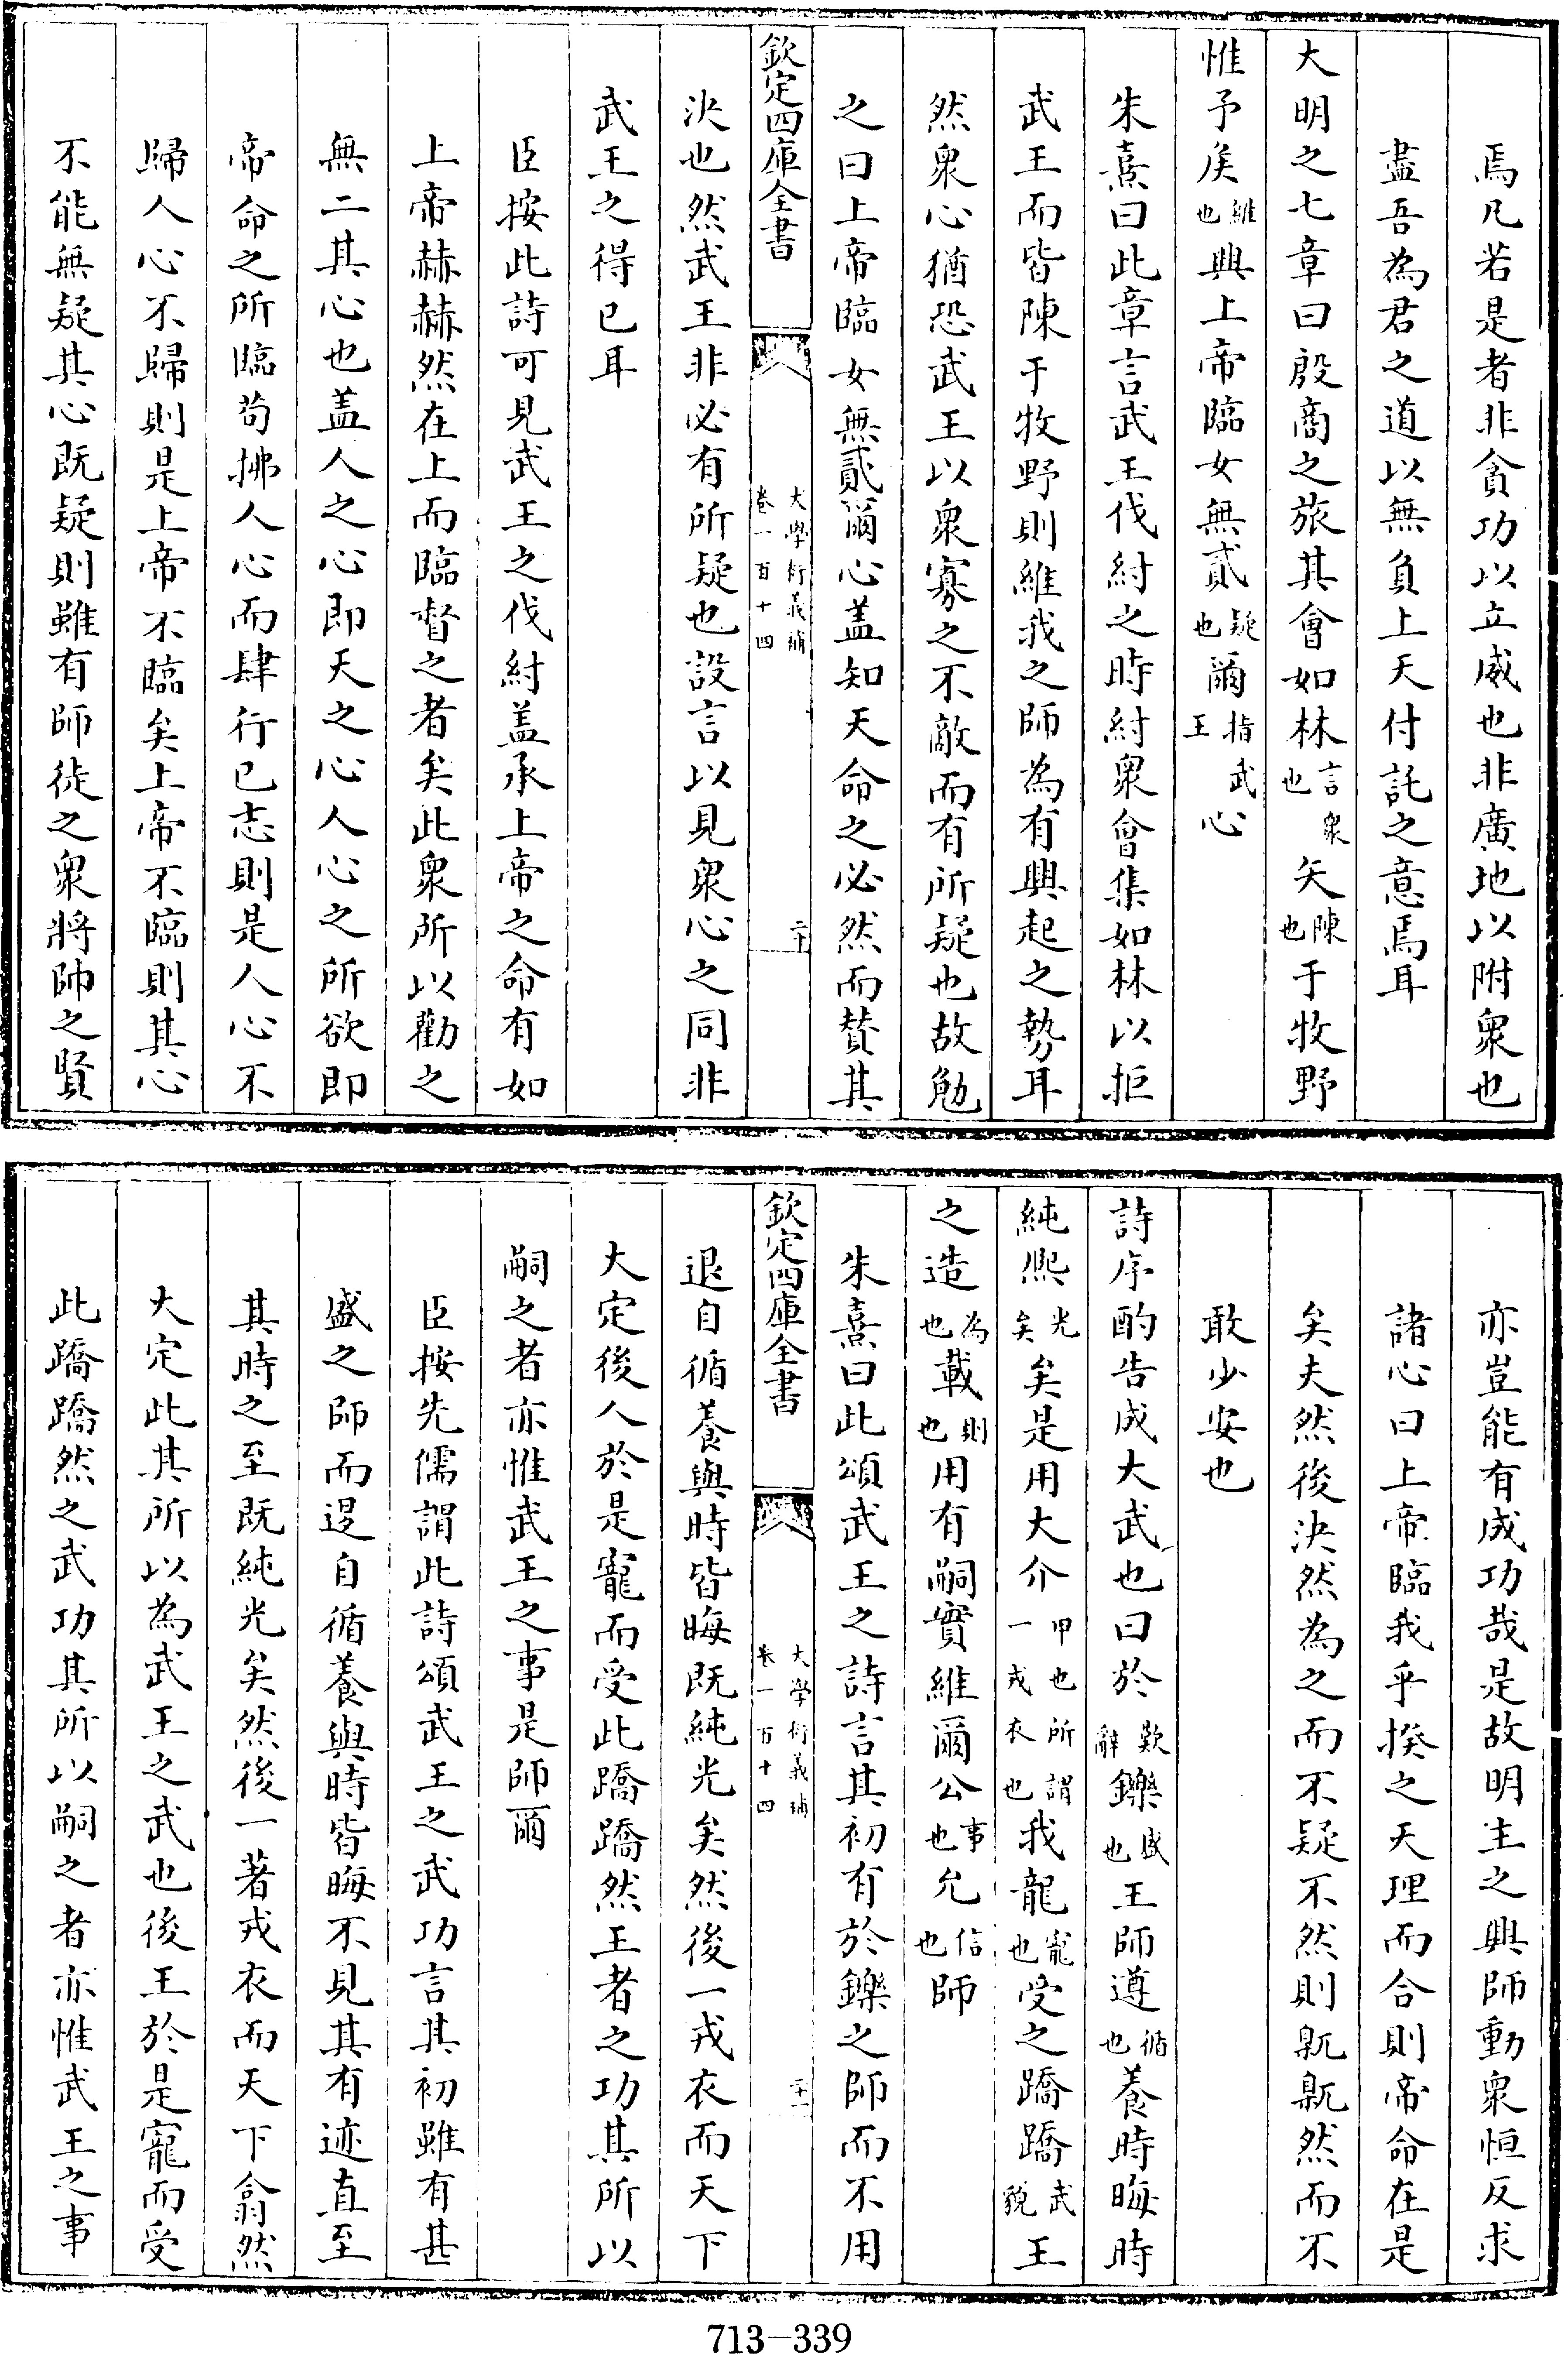 焉凡若是者非貪功以立威也非廣地以附衆也
盡吾為君之道以無負上天付託之意焉耳
大明之七章曰殷商之旅其會如林言衆也矢陳也于牧野
惟予矦維也興上帝臨女無貳疑也爾指武王心
朱熹曰此章言武王伐紂之時紂衆會集如林以拒
武王而皆陳于牧野則維我之師為有興起之勢耳
然衆心猶恐武王以衆寡之不敵而有所疑也故勉
之曰上帝臨女無貳爾心盖知天命之必然而賛其
欽定四庫全書
大學衍義補
卷一百十四
二十
決也然武王非必有所疑也設言以見衆心之同非
武王之得已耳
臣按此詩可見武王之伐紂盖承上帝之命有如
上帝赫赫然在上而臨督之者矣此衆所以勸之
無二其心也盖人之心即天之心人心之所欲即
帝命之所臨茍拂人心而肆行已志則是人心不
歸人心不歸則是上帝不臨矣上帝不臨則其心
不能無疑其心既疑則雖有師徒之衆將帥之賢
亦豈能有成功哉是故明主之興師動衆恒反求
諸心曰上帝臨我乎揆之天理而合則帝命在是
矣夫然後決然為之而不疑不然則臲臲然而不
敢少安也
詩序酌告成大武也曰於歎辭鑠盛也王師遵循也養時晦時
純熈光矣矣是用大介甲也所謂一戎衣也我龍寵也受之蹻蹻武貌王
之造為也載則也用有嗣實維爾公事也允信也師
朱熹曰此頌武王之詩言其初有於鑠之師而不用
欽定四庫全書
大學衍義補
卷一百十四
二十一
退自循養與時皆晦既純光矣然後一戎衣而天下
大定後人於是寵而受此蹻蹻然王者之功其所以
嗣之者亦惟武王之事是師爾
臣按先儒謂此詩頌武王之武功言其初雖有甚
盛之師而退自循養與時皆晦不見其有迹直至
其時之至既純光矣然後一著戎衣而天下翕然
大定此其所以為武王之武也後王於是寵而受
此蹻蹻然之武功其所以嗣之者亦惟武王之事
713—339